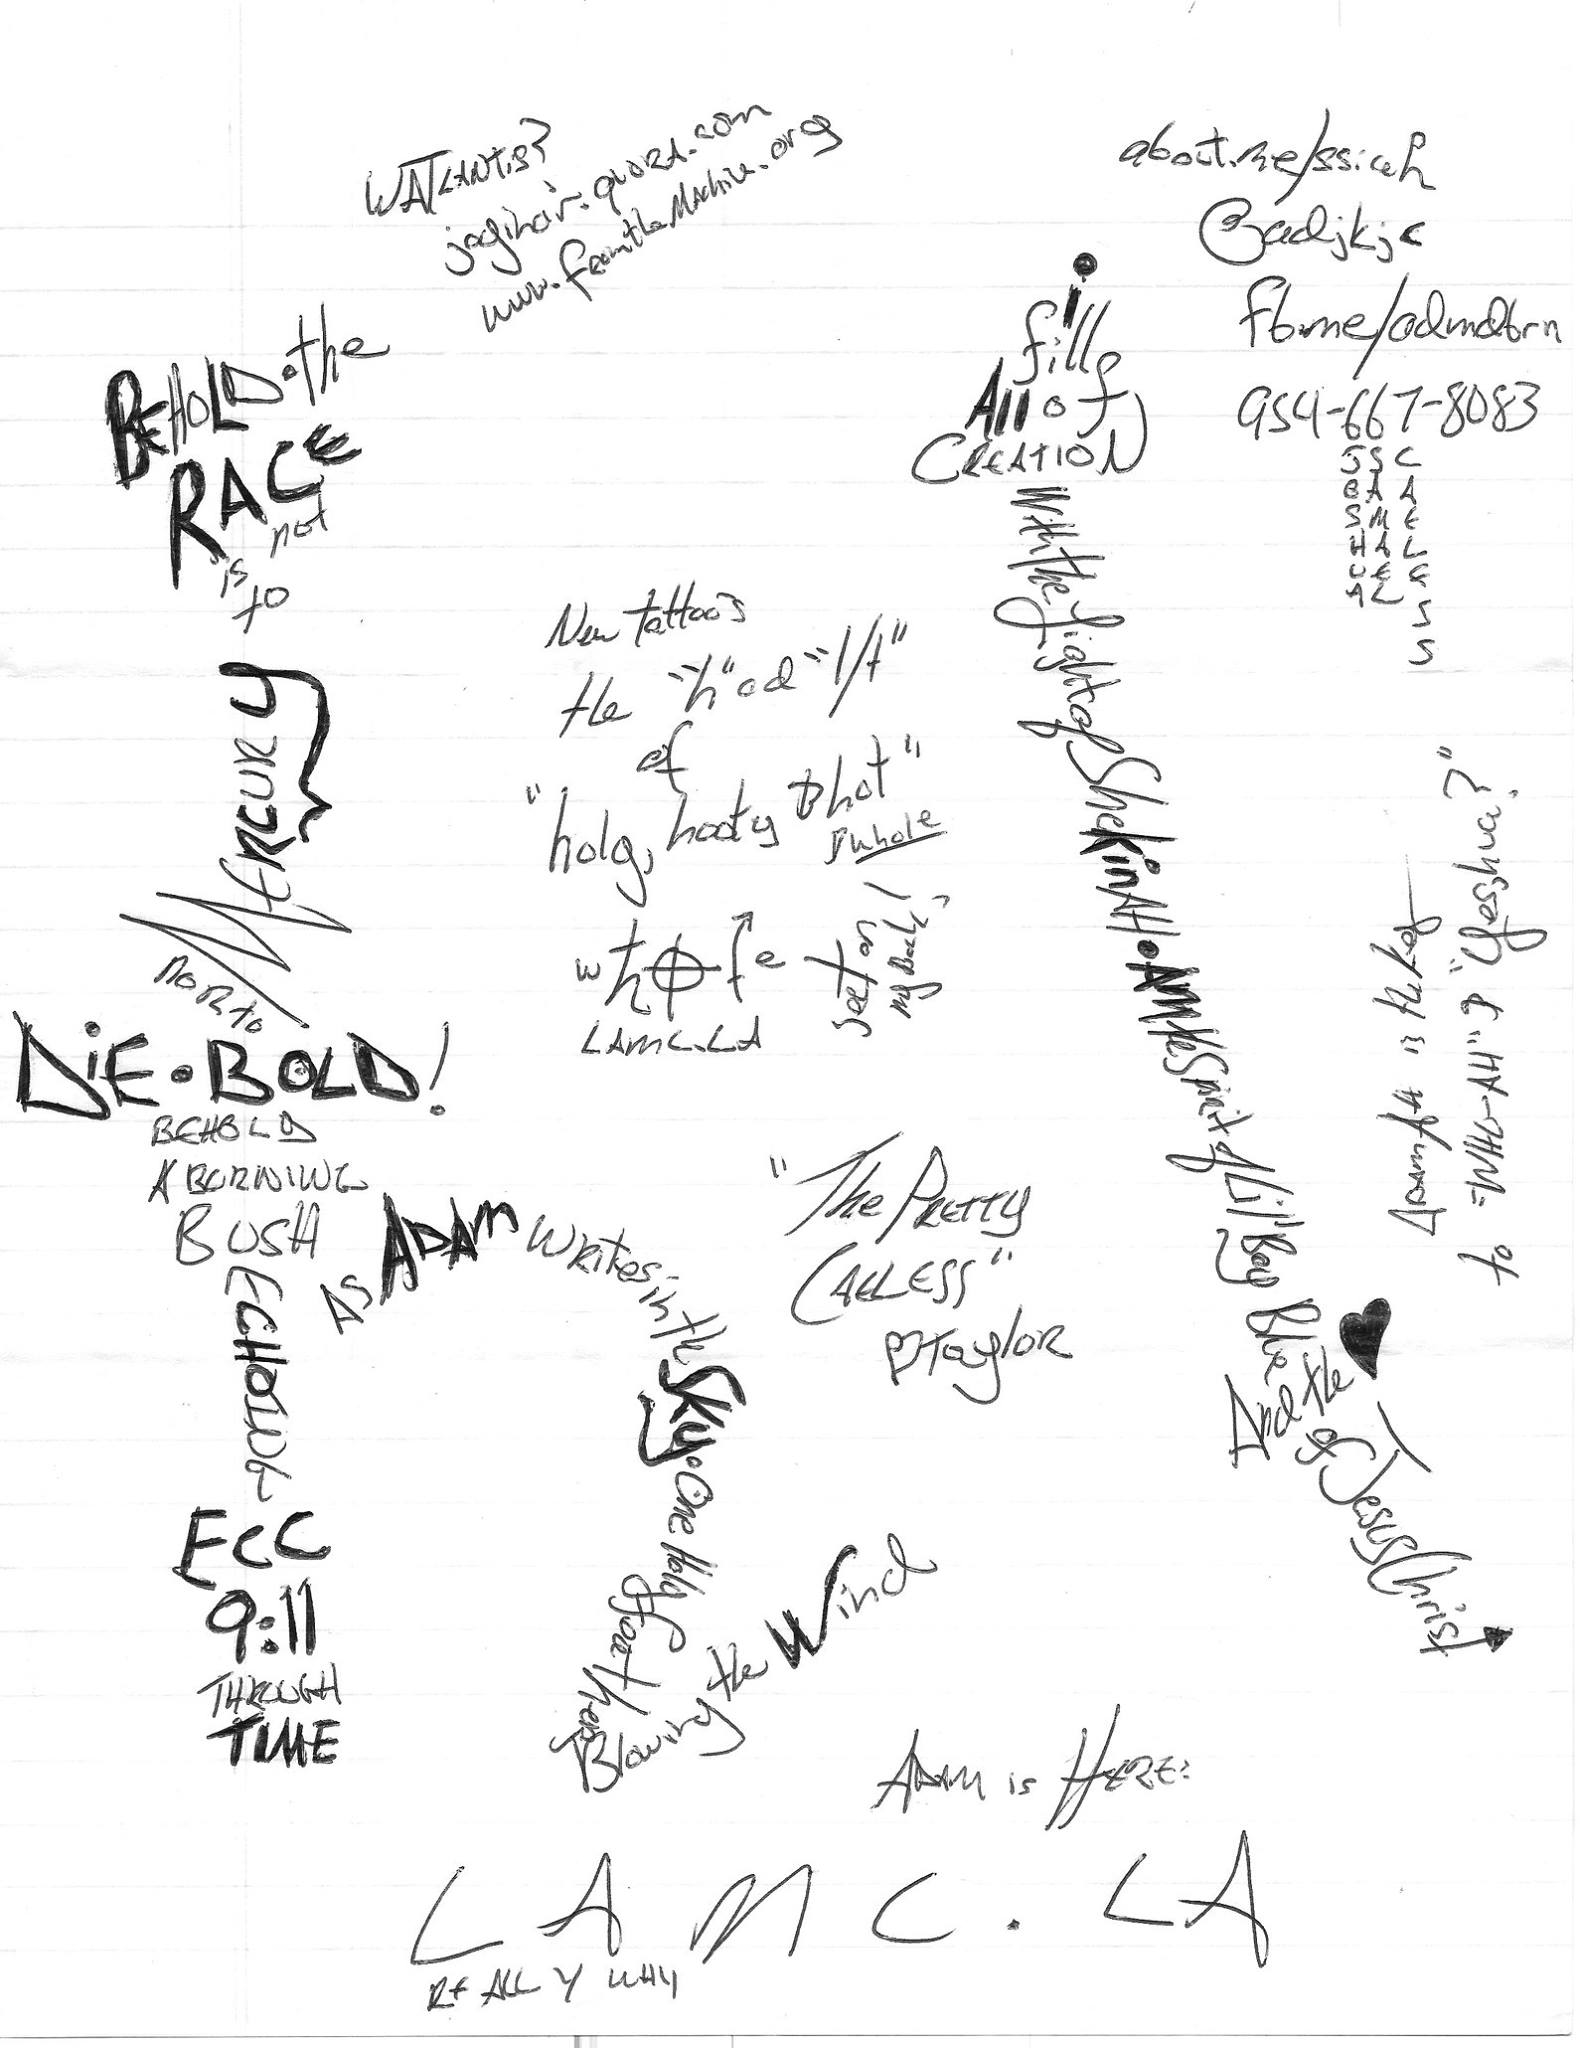 WATLANTIS?
jaginoir.quora.com
www.fromtheMachine.org
about.me/ssiah
@adjkjc
fb.me/admdbrn
954-667-8083
JSC
BAA
SME
HAL
UEG
AL
S
S
BEHOLD • the
RACE
is not
to
MERCURY
nor to
DiE • BOLD!
BEHOLD
A BURNING
BUSH
ECHOING
ECC
9:11
THROUGH
TIME
AS ADAM writes in the Sky. One Holy
Blowing the Wind
i
fill
All of
CREATION
With the Light of ShekinAH • AM the Spirit of Lil' Boy Blue
And the ♥
of Jesus Christ
New tattoo's
the "h" ad "l/t"
of
"holy, hooty thot"
w ħ e
LAMC.LA
on
my Back!
"The PRETTY
CAELESS"
Taylor
ADAMAH is the key
to "WHO-AH" "Yeshua?"
ADAM is HERE:
LAMC.LA
REALLY WHY